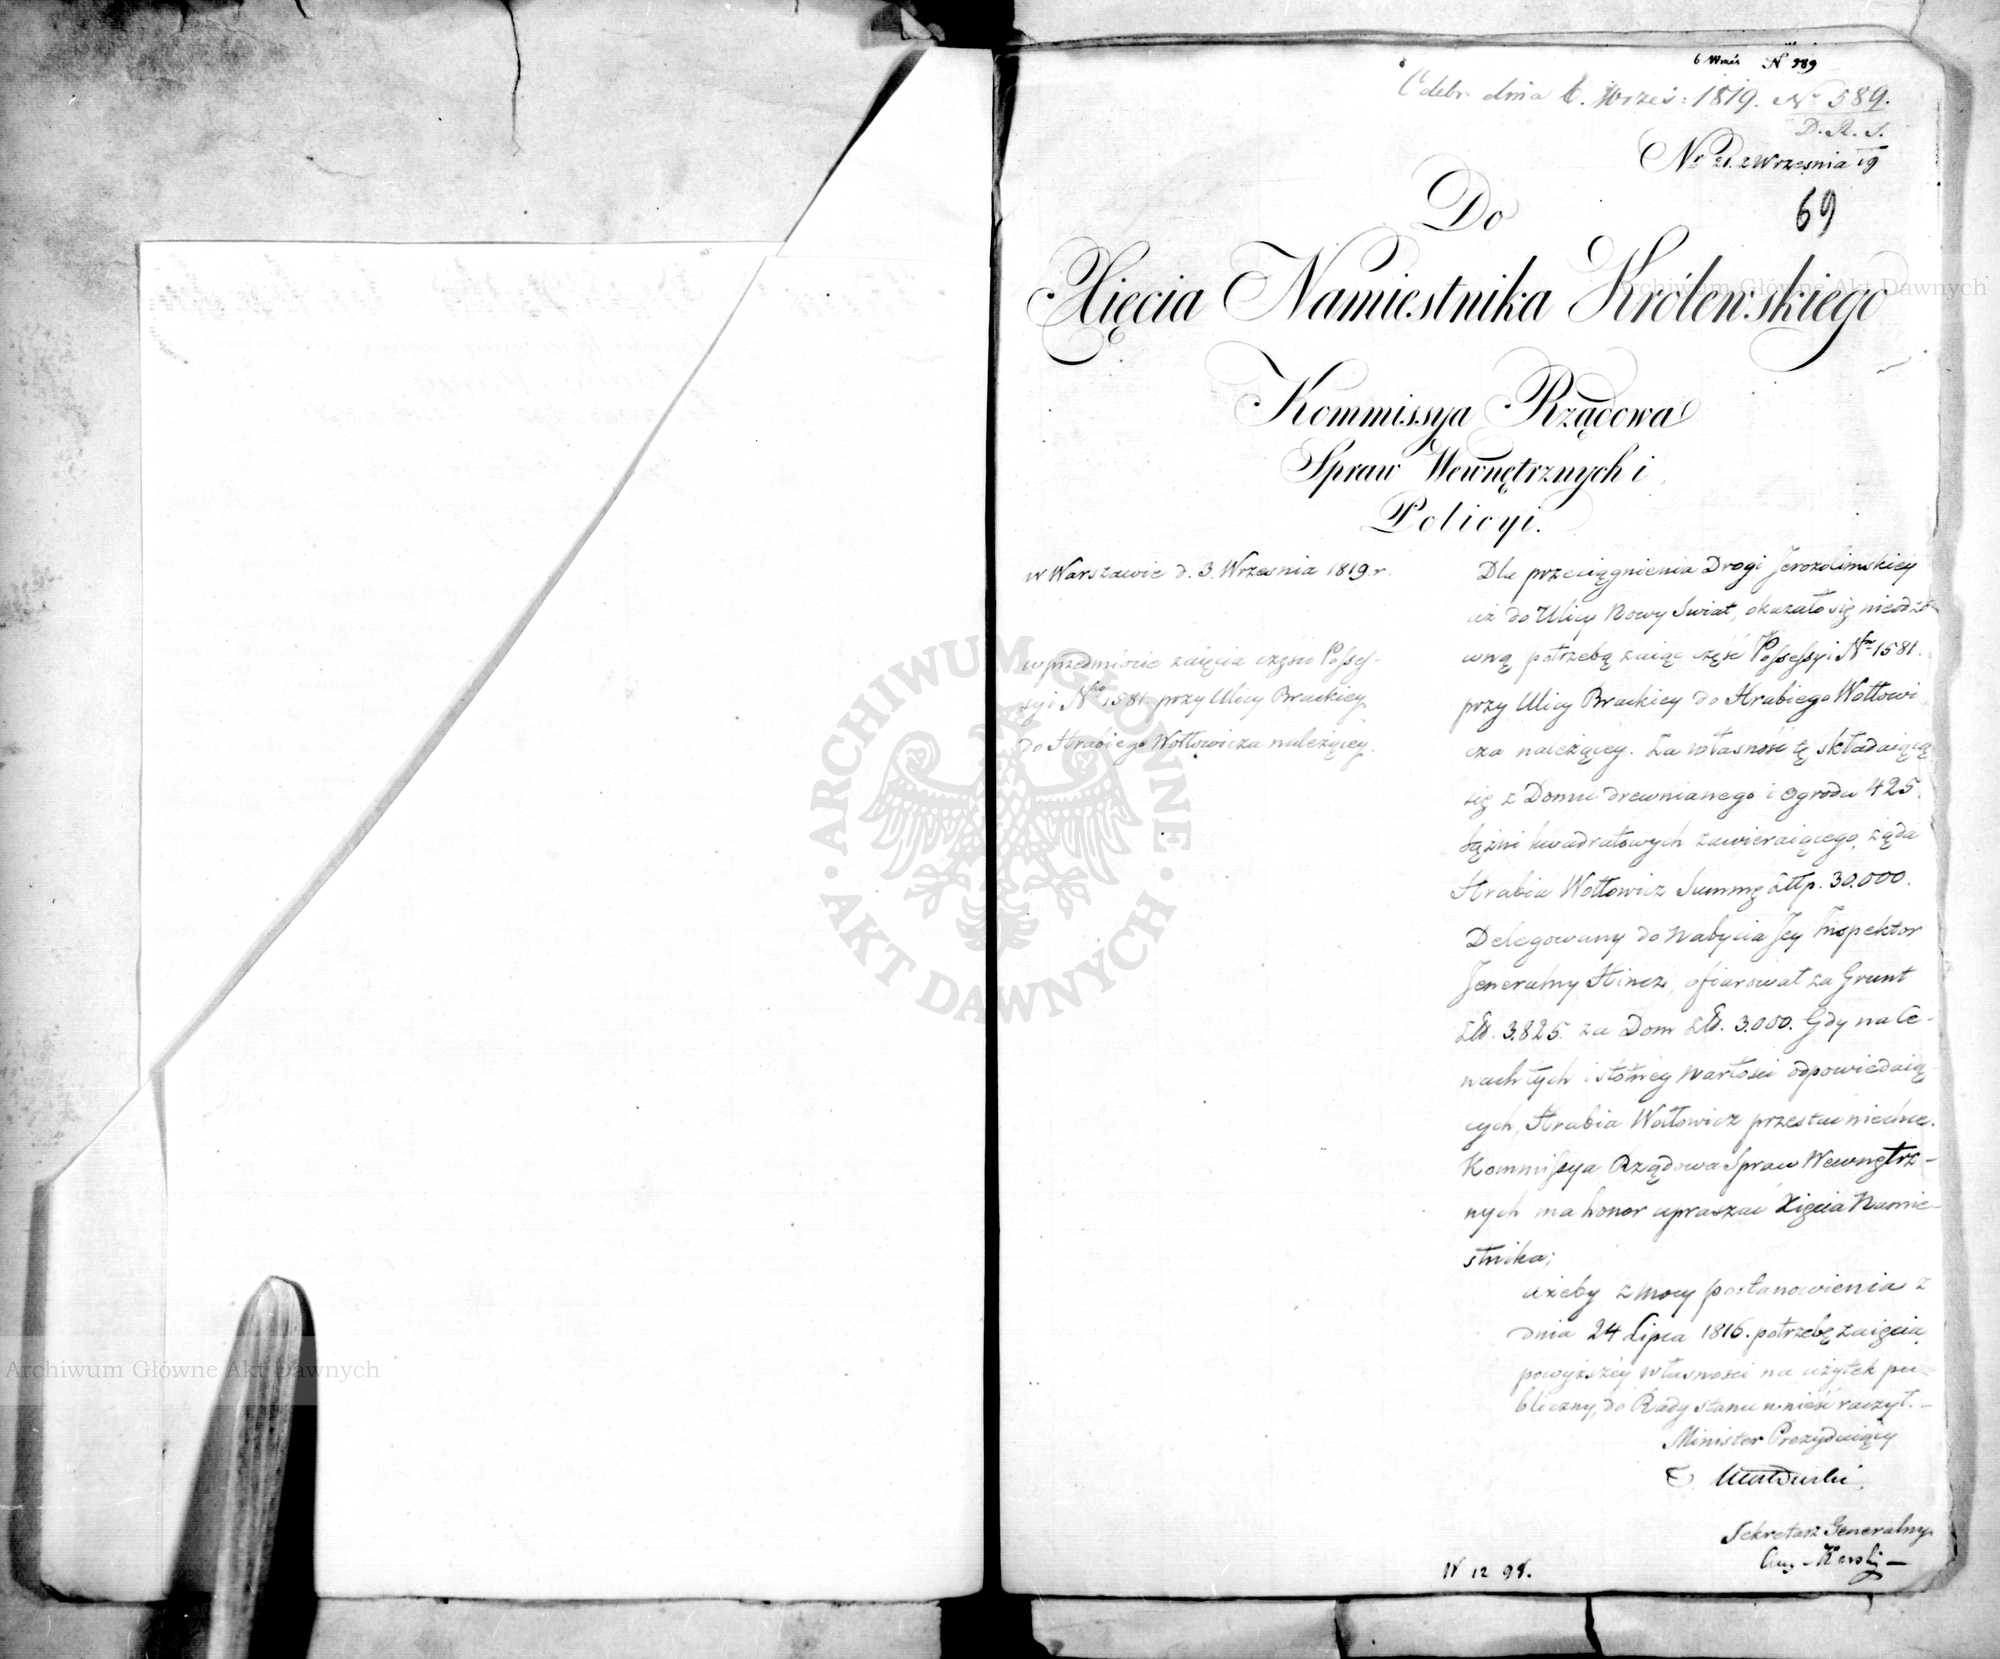 6 Wrześ N 589
Odebr. dnia 6. Wrześ: 1819. Nr 589.
D. A. S.
Nr 21. 2 Września 19
69
Do
Xięcia Namiestnika Królewskiego
Kommissya Rządowa
Spraw Wewnętrznych i
Policyi.
w Warszawie d. 3. Wrzesnia 1819. r.
w przedmiocie zaięcia części Posses-
syi Nro 1581 przy Ulicy Brackiey
do Hrabiego Wołłowicza należącey.
Dla przeciągnienia Drogi Jerozolimskiey
aż do Ulicy Nowy Swiat, okazało się nieodzo-
wną potrzebą zaiąć część Possessyi Nro 1581.
przy Ulicy Brackiey do Hrabiego Wołłowi
cza należącey. Za własność tę składaiącą
się z Domu drewnianego i Ogrodu 425.
sążni kwadratowych zawieraiącego, żąda
Hrabia Wołłowicz Summę Złłp. 30.000.
Delegowany do nabycia Jey Inspektor
Jeneralny Hincz, ofiarował za Grunt
Złł. 3.825. za Dom Złł. 3.000. Gdy na Ce-
nach tych istotney wartości odpowiedaią-
cych, Hrabia Wołłowicz przestać niechce.
Kommissya Rządowa Spraw Wewnętrz-
nych ma honor upraszać Xięcia Namie-
stnika;
ażeby z mocy postanowienia z
dnia 24 Lipca 1816. potrzebę zaięcia
powyższey własności na użytek pu-
bliczny, do Rady Stanu wnieść raczył. -
Minister Prezyduiący
T. Mostowski
Sekretarz Generalny
Aug. Karski
N 12 98.
Archiwum Główne Akt Dawnych
ARCHIWUM GŁÓWNE
AKT DAWNYCH
Archiwum Główne Akt Dawnych